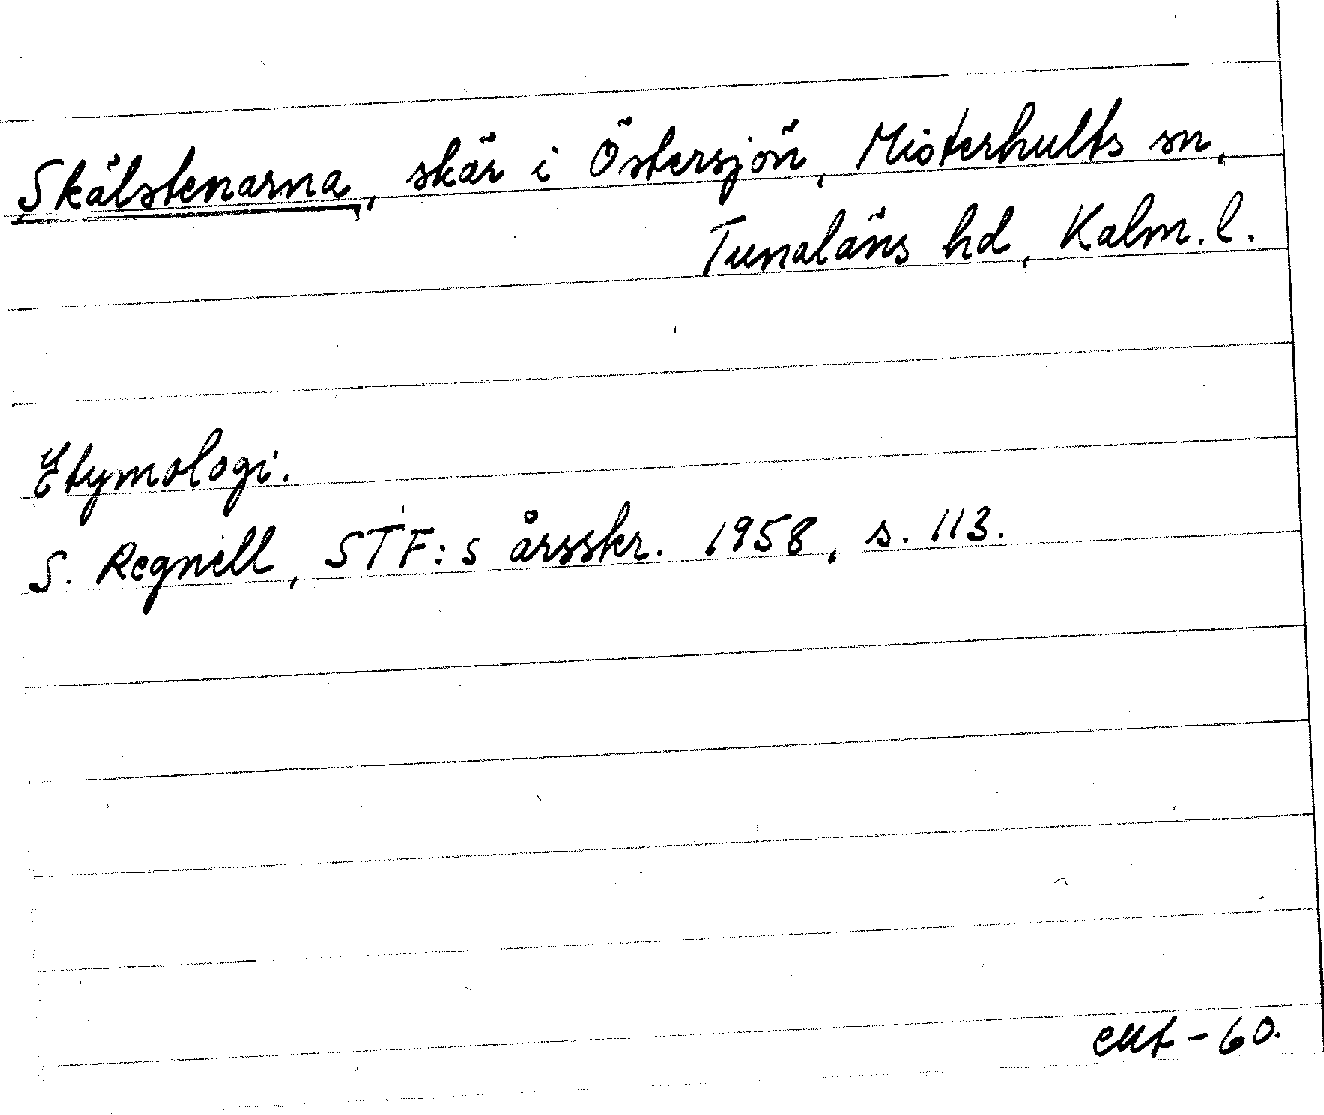 Skälstenarna, skär i Östersjön, Misterhults sn,
Tunaläns hd, Kalm. l.
Etymologi.
S. Regnéll, STF:s årsskr. 1958, s. 113.
-60.